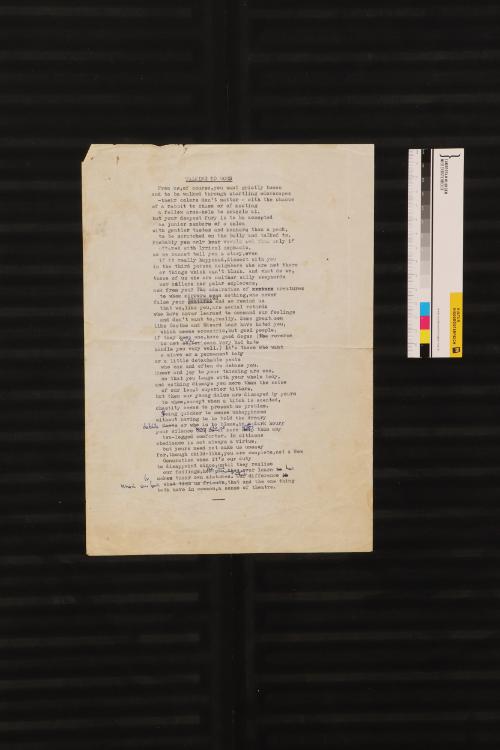 TALKING TO DOGS
From us,of course,you want gristly bones
and to be walked through startling odorscapes
-their colors don't matter - with the chance
of a rabbit to chase or of meeting
a fellow arse-hole to snuzzle at,
but your deepest fury is to be accepted
as junior members of a salon
with gentler tastes and manners than a pack,
to be scratched on the belly and talked to.
Probably you only hear vowels and then only if
uttered with lyrical emphasis,
so we cannot tell you a story,even
if it really happened,dissect with you
in the third person neighbors who are not there
or things which can't blush. And what do we,
those of us who are neither willy shepherds
nor killers nor polar explorers,
ask from your The admiration of creatures
to whom mirrors mean nothing,who never
false your and so remind us
that we,like you,are social retards
who have never learned to command our feelings
and don't want to,really. Some great men
like Goethe and Edward Lear have hated you,
which seems eccentric,but good people,
if they keep one,have good dogs. (The reverse
is not so,for some very bad hats
handle you very well.) It's those who want
a slave or a permanent baby
or a little detachable penis
who can and often do debase you.
Humor and joy to your thinking are one,
so that you laugh with your whole body,
and nothing dismays you more than the noise
of our local superior titters,
but then our young males are dismayed by yours
to whom,except when a bitch is scented,
chastity seems to present no problem.
Being quicker to sense unhappiness
without having to be told the dreary
details or who is to blame,in a dark hour
your silence may be of more help than any
two-legged comforter. In citizens
obedience is not always a virtue,
but yours need not make us uneasy
for,though child-like,you are complete,not a New
Generation whom it's our duty
to disappoint since,until they realise
our failings,
makes their own mistakes. difference
us friends,that and the one thing
both have in common,a sense of theatre.